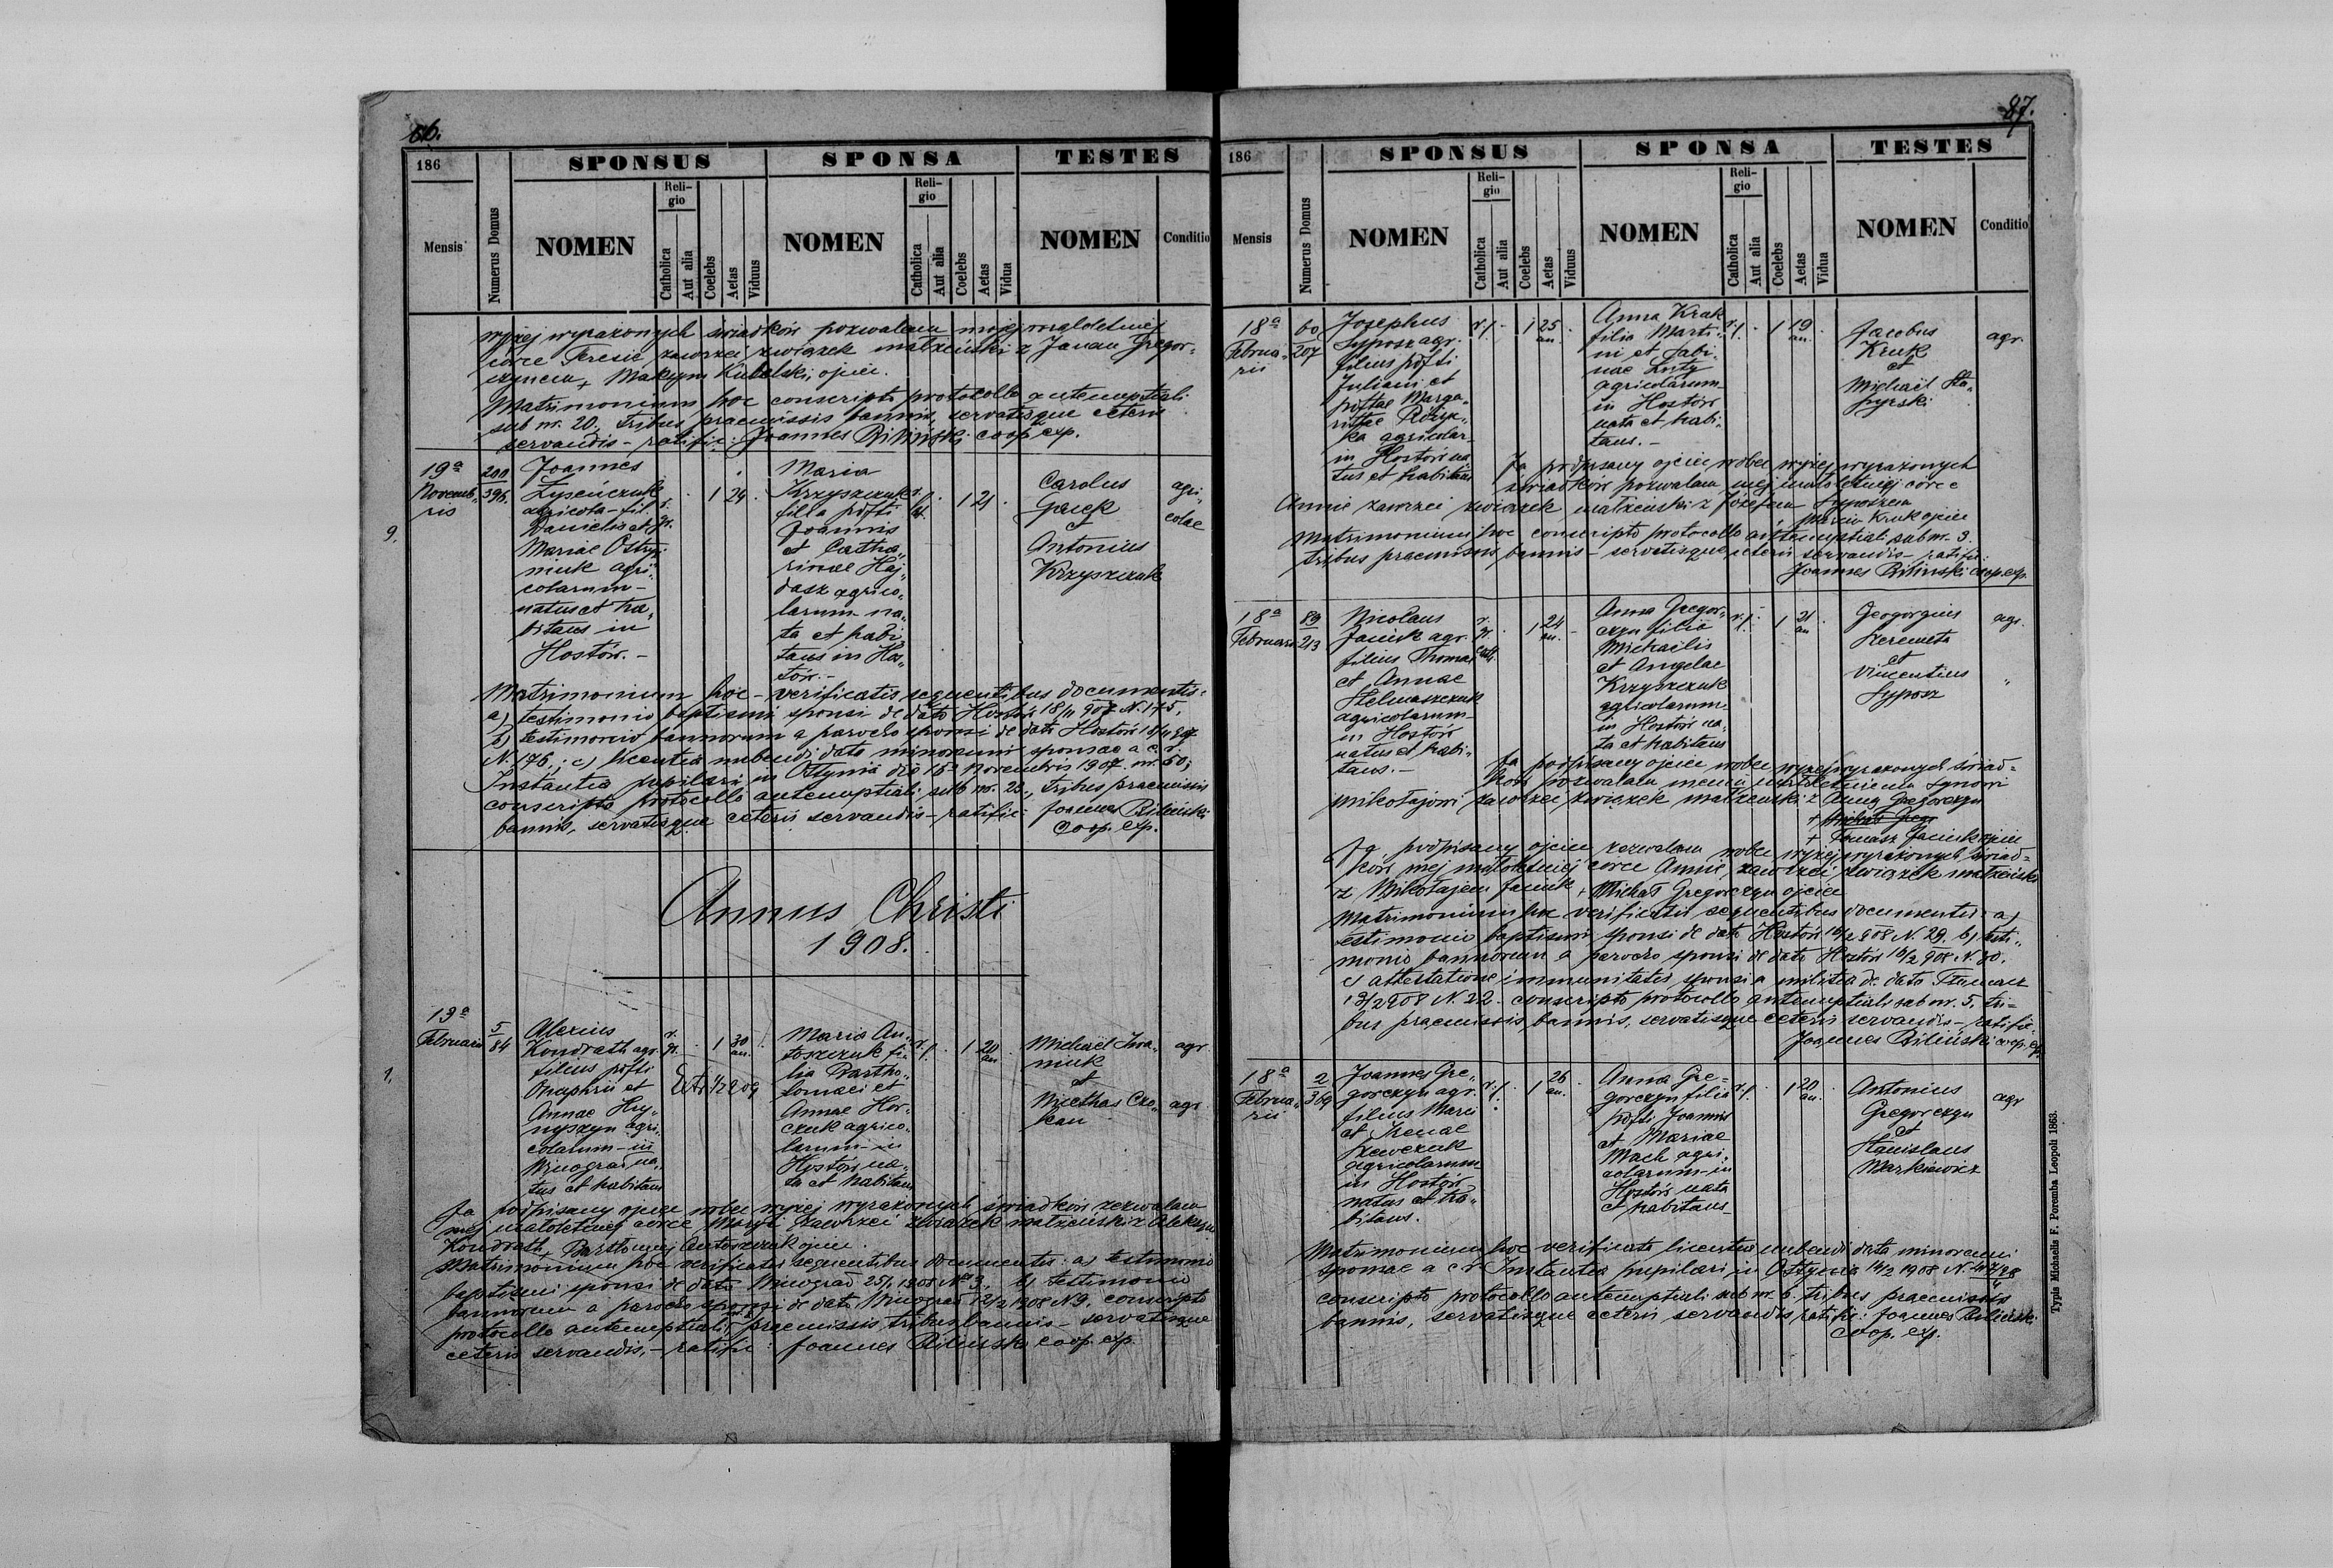 86.
186
SPONSUS
SPONSA
TESTES
Mensis
Numerus Domus
NOMEN
Religio
Catholica
Aut alia
Coelebs
Aetas
Viduus
NOMEN
Religio
Catholica
Aut alia
Coelebs
Aetas
Vidua
NOMEN
Conditio
wyżej wyrażonych świadków pozwalam mojej małoletniej
córce Teresie zawrzeć związek małżeński z Janem Gregor-
czynem + Maksym Kubelski, ojciec.
Matrimonium hoc conscripto protocollo antenuptiali
sub nr. 20, tribus praemissis bannis, servatisque ceteris
servandis - ratific: Joannes Biliński coop. exp.
19ª
Novemb-
ris
200
396.
9.
Joannes
Łysenczuk
agricola - fil.
Danielis et
Mariae Ostry-
niuk agri-
colarum -
natus et ha-
bitans in
Hostów. -
1 24
Maria
Krzyszczuk
filia p̃osti
Joannis
et Catha-
rinae Haj-
dasz agrico-
larum na-
ta et habi-
tans in Hos-
tów. -
1 21
Carolus
Gaick
et
Antonius
Krzyszczuk
agri-
colae
Matrimonium hoc - verificatis sequentibus documentis:
a) testimonio baptismi sponsi de dato Hostów 18/11 907 N. 175,
b) testimonio bannorum a parocho sponsi de dato Hostów 18/11 907
N. 176.; c) licentia nubendi dato minorenni sponsae a c. r.
Instantia pupilari in Ottynia die 15ª Novembris 1907. nr. 50;
conscripto protocollo antenuptiali sub nr. 23., tribus praemissis
bannis, servatisque ceteris servandis - ratific: Joannes Biliński
Coop. exp.
Annus Christi
1908.
13ª
Februarii
5
84
1.
Alexius
Kondrath agr.
filius p̃osti
Onuphrii et
Annae Hry-
nyszyn agri-
colarum - in
Winograd na-
tus et habitans
r.
gr.
1 30
an.
Maria An-
toszczuk fi-
lia Bartho-
lomaei et
Annae Hor-
czuk agrico-
larum - in
Hostów na-
ta et habitans
r. l.
1 20
an
Michaël Iwa-
niuk
et
agr.
agr.
Ja podpisany ojciec wobec wyżej wyrażonych świadków zezwalam
mej małoletniej córce Maryi zawrzeć związek małżeński z Aleksym
Kondrath + Bartłomiej Antoszczuk ojciec.
Matrimonium hoc verificatis sequentibus documentis: a) testimonio
baptismi sponsi de dato Winograd 25/1 1908 Nº 3. b) testimonio
bannorum a parocho sponsi de dato Winograd 12/2 1908 N 9. conscripto
protocollo antenuptiali, praemissis tribus bannis - servatisque
ceteris servandis, - ratific: Joannes Biliński coop. exp.
87.
186
SPONSUS
SPONSA
TESTES
Mensis
Numerus Domus
NOMEN
Religio
Catholica
Aut alia
Coelebs
Aetas
Viduus
NOMEN
Religio
Catholica
Aut alia
Coelebs
Aetas
Vidua
NOMEN
Conditio
18ª
Februa-
rii
60
207
Josephus
Syposz agr.
filius p̃osti
Juliani et
p̃ostae Marga-
rittae
agricolar-
in Hostów na
tus et habitans
r. l.
1 25
an.
Anna Kruk
filia Marti-
ni et Sabi-
nae Luty
agricolarum
in Hostów
nata et habi-
tans. -
r. l.
1 19
an.
Jacobus
Kruk
et
Michaël Sta-
pyrski
agr.
Ja podpisany ojciec wobec wyżej wyrażonych
świadków pozwalam mej małoletniej córce
Annie zawrzeć związek małżeński z Józefem Syposzem
+ Marcin Kruk ojciec
Matrimonium hoc conscripto protocollo antenuptiali sub nr. 3.
tribus praemissis bannis - servatisque ceteris servandis - ratific:
Joannes Biliński coop. exp.
18ª
Februarii
89
213
Nicolaus
Jaciuk agr.
filius Thomae
et Annae
Stelmaszczuk
agricolarum
in Hostów
natus et habi-
tans. -
r.
gr.
cath.
1 24
an.
Anna Gregor-
czyn filia
Michaëlis
et Angelae
Krzyszczuk
agricolarum
in Hostów na-
ta et habitans
r. l.
1 21
an
Georgius
Szeremeta
et
Vincentius
Syposz
agr.
"
Ja podpisany ojciec wobec wyżej wyrażonych świad-
ków pozwalam memu małoletniemu synowi
Mikołajowi zawrzeć związek małżeński z Anną Gregorczyn
+ Michał Greg
+ Tomasz Jaciuk ojciec
Ja podpisany ojciec zezwalam wobec wyżej wyrażonych świad-
ków mej małoletniej córce Annie, zawrzeć związek małżeński
z Mikołajem Jaciuk + Michał Gregorczyn ojciec
Matrimonium hoc verificatis sequentibus documentis: a)
testimonio baptismi sponsi de dato Hostów 16/2 908 N. 29. b) testi-
monio bannorum a parocho sponsi de dato Hostów 16/2 908 N. 30.
c) attestatione immunitatis sponsi a militia de dato Tłumacz
13/2 908 N. 22. conscripto protocollo antenuptiali sub nr. 5. tri-
bus praemissis bannis, servatisque ceteris servandis - ratific:
Joannes Biliński coop. exp.
18ª
Februa-
rii
2
369
Joannes Gre-
gorczyn agr.
filius Marci
et Irenae
Szewczuk
agricolarum
in Hostów
natus et ha-
bitans.
r. l.
1 26
an.
Anna Gre-
gorczyn filia
p̃osti Joannis
et Mariae
Mach agri-
colarum - in
Hostów nata
et habitans
r. l.
1 20
an.
Antonius
Gregorczyn
et
Stanislaus
Markiewicz
agr
Matrimonium hoc verificata licentia nubendi data minorenni
sponsae a c. r. Instantia pupilari in Ottynia 14/2 1908 N.
conscripto protocollo antenuptiali sub nr. 6. tribus praemissis
bannis, servatisque ceteris servandis ratific: Joannes Biliński
Coop. exp.
Typis Michaelis F. Poremba Leopoli 1863.